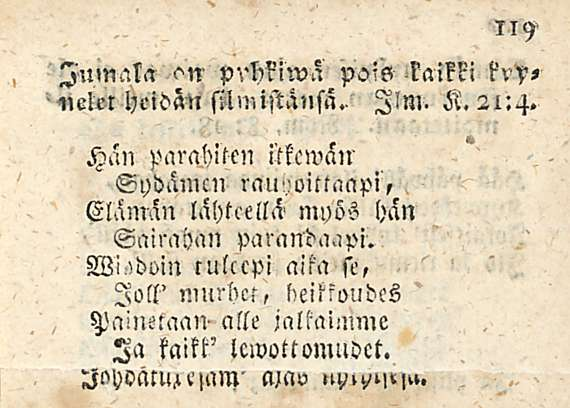 119
Jumala on pyhkiwä pois kaikki kyy-
nelet heidän silmistänsä. Ilm. K. 21:4.
Hän parahiten itkewän
Sydämen rauhoittaapi,
Elämän lähteellä myös hän
Sairahan parandaapi.
Wiudoin tuleepi aika se,
Joll' murhet, heikkoudes
Painetaan alle jalkaimme
Ja kaikk' lewottomudet.